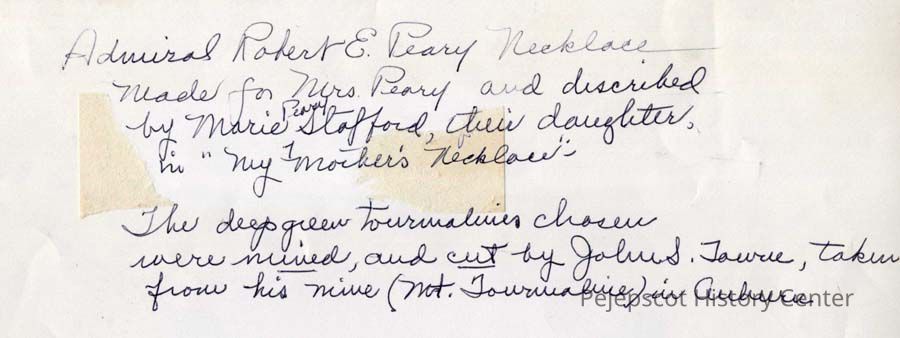 Admiral Robert E. Peary Necklace
made for Mrs. Peary and described
by Marie Peary Stafford, their daughter,
in "My Mother's Necklace"-
The deep green tourmalines chosen
were mined, and cut by John S. Towne, taken
from his mine (Mt. Tourmaline) in Auburn.
Pejepscot History Center